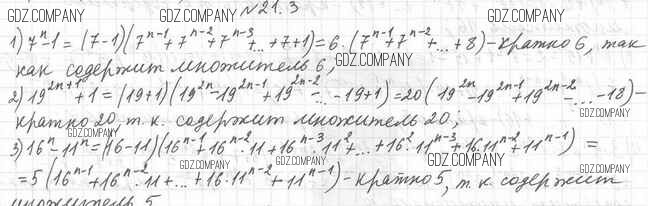 GDZ.COMPANY №21.3 GDZ.COMPANY
1) 7ⁿ-1 = (7-1)(7ⁿ⁻¹+7ⁿ⁻²+7ⁿ⁻³+...+7+1)=6·(7ⁿ⁻¹+7ⁿ⁻²+...+8)-кратно 6, так
как содержит множитель 6; GDZ.COMPANY
2) 19²ⁿ⁺¹+1=(19+1)(19²ⁿ-19²ⁿ⁻¹+19²ⁿ⁻²-...-19+1)=20(19²ⁿ-19²ⁿ⁻¹+19²ⁿ⁻²-...-18)-
кратно 20, т.к. содержит множитель 20;
GDZ.COMPANY GDZ.COMPANY
3) 16ⁿ-11ⁿ=(16-11)(16ⁿ⁻¹+16ⁿ⁻²·11+16ⁿ⁻³·11²+...+16²·11ⁿ⁻³+16·11ⁿ⁻²+11ⁿ⁻¹) =
GDZ.COMPANY GDZ.COMPANY GDZ.COMPANY
=5(16ⁿ⁻¹+16ⁿ⁻²·11+...+16·11ⁿ⁻²+11ⁿ⁻¹)-кратно 5, т.к. содержит
множитель 5